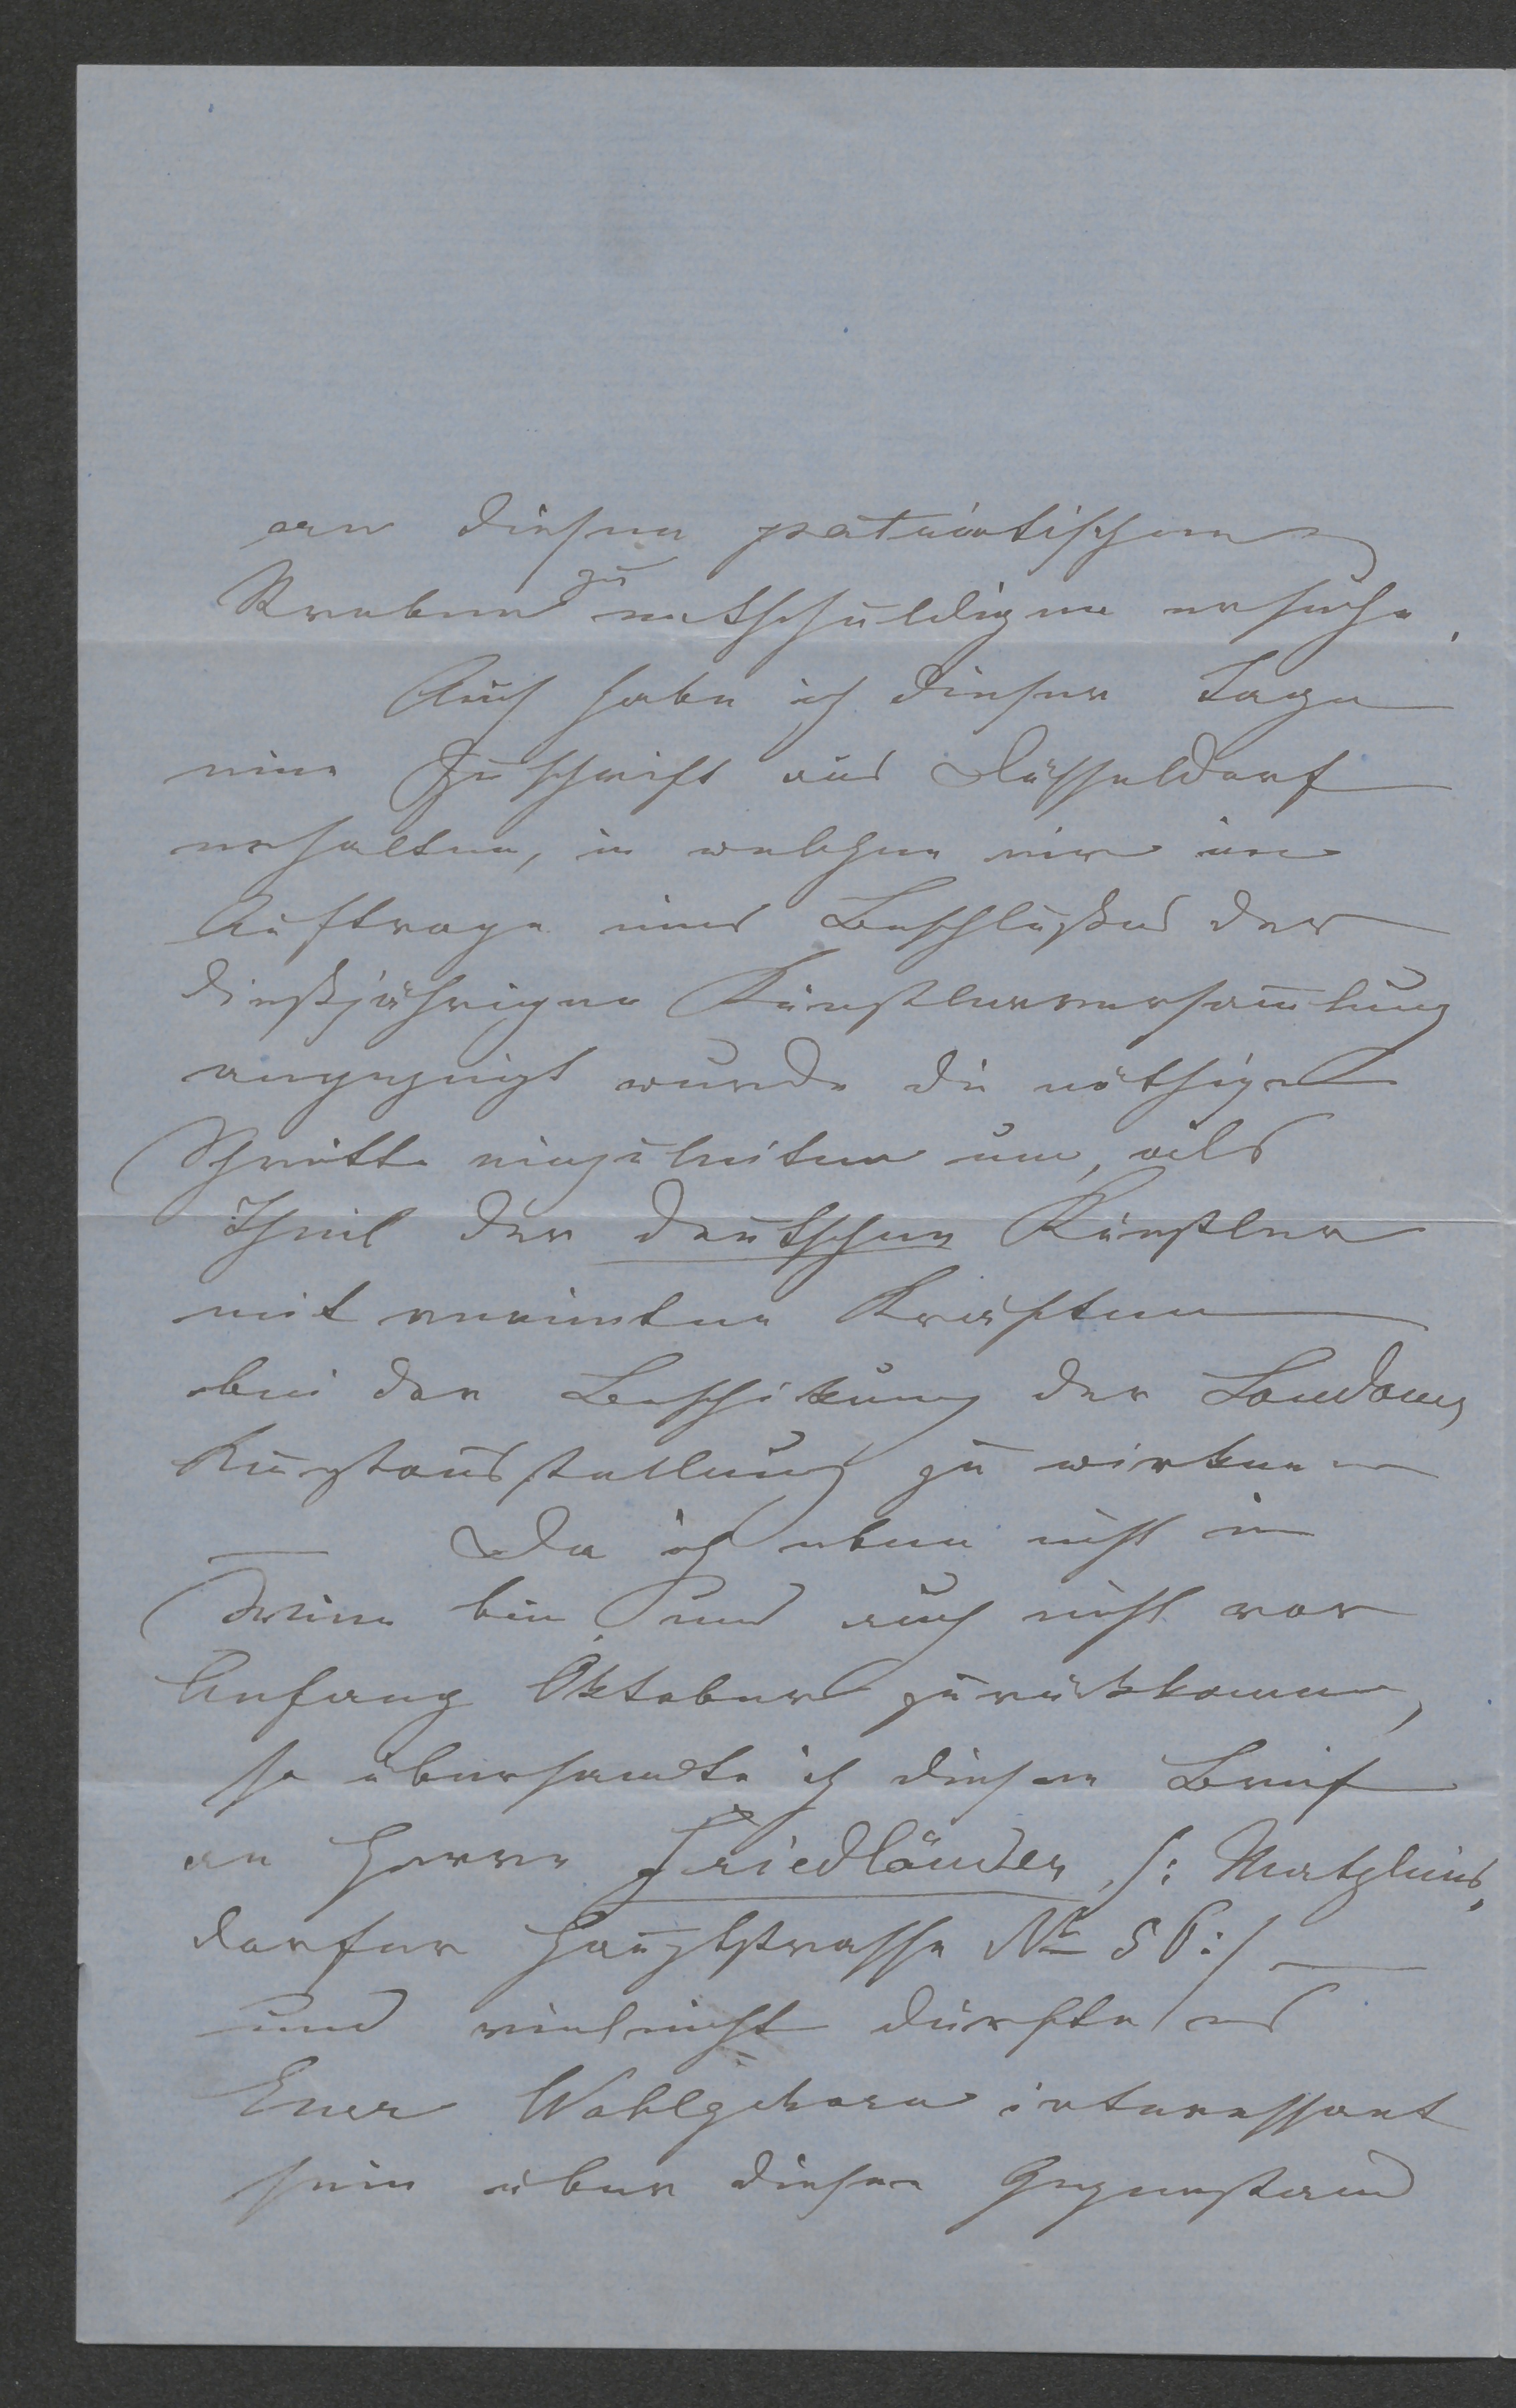 an diesem patriotischen
Streben zu entschuldigen ersuche.
Auch habe ich dieser Tage
eine Zuschrift aus Düsseldorf
erhalten, in welcher mir im
Auftrage eines Beschlußes der
dießjährigen Künstlerversam̅lung
angezeigt wurde die nöthigen
Schritte einzuleiten um, als
Theil der deutschen Künstler
mit vereinten Kräften
bei der Beschikung der Londoner
Kunstausstellung zu wirken
Da ich eben nicht in
Wien bin und auch nicht vor
Anfang Oktober zurükkomme,
so übersandte ich diesen Brief
an Herrn Friedländer, /: Matzleins¬
dorfer Hauptstrasse No 56 :/
und vieleicht dürfte es
Euer Wohlgeboren interessant
sein über diesen Gegenstand